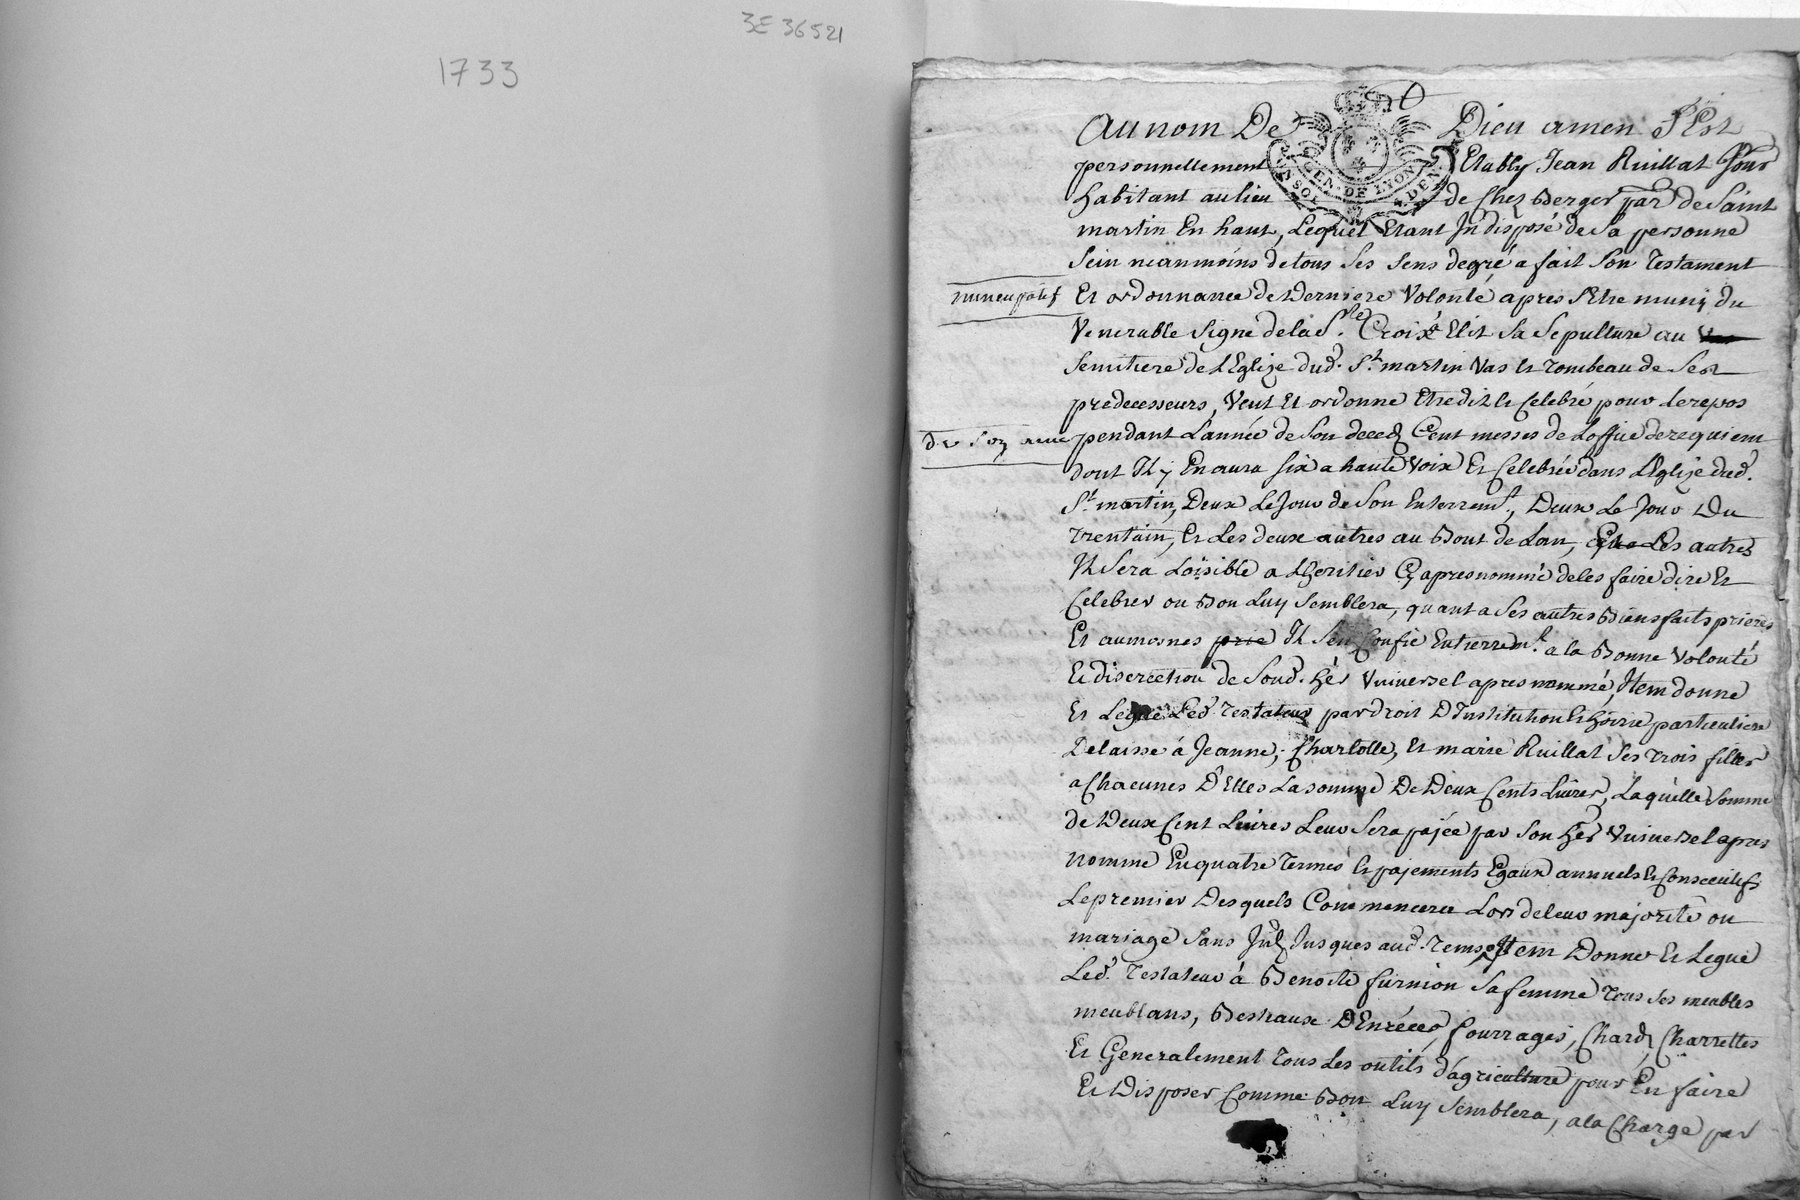 3E 36521
1733
GEN. DE LYON
2. SOLS 4. DEN.
Au nom De Dieu amen S'Est
personnellement Etably Jean Ruillat Jour
habitant au lieu de Chez Berger par de Saint
martin En haut, Lequel Etant Jndisposé de Sa personne
Sein neanmoins de tous Ses Sens degré a fait Son Testament
nuncupatif
Et ordonnance de Derniere Volonté apres S'Etre muny du
Venerable Signe de la Ste Croix Elit Sa Sepulture au
Semitiere de L'Eglize dud. St. martin Vas Et Tombeau de Ses
predecesseurs, Veut Et ordonne Etre dit Et Celebré pour Le repos
de Son ame
pendant L'année de Son deced Cent messes de L'office de requiem
dont Il y En aura six a haute Voix Et Celebrée dans L'Eglize dud.
St. martin, Deux Le Jour de Son Enterremt, Deux Le Jour Du
Trentain, Et Les deux autres au Bout de Lan, Les autres
Il Sera Loisible a Lheritier Cy apres nommé de les faire dire Et
Celebrer ou Bon Luy Semblera, quant a Ses autres Biensfaits prieres
Et aumosnes prie Il Sen Confie Entierremt. a la Bonne Volonté
Et discrettion de Sond. her Vniversel apres nommé, Item donne
Et Legue Led. Testateur par droit D'Institution Et hoirie particuliere
Delaisse á Jeanne, Charlotte, Et marie Ruillat Ses Trois filles
a Chacunes D'Elles La somme De Deux Cents Livres, Laquelle Somme
de Deux Cent Livres Leur Sera pajée par Son her Vniversel apres
nomme En quatre Termes Et pajements Egaux annuels Et Consecutifs
Le premier Desquels Commencera Lors de leur majorité ou
mariage Sans Jusques aud. Tems, Item Donne Et Legue
Led. Testateur á Benoite furnion Sa femme Tous Ses meubles
meublans, Bestiaux Denrées, fourrages, Chard Charrettes
Et Generalement Tous Les outils d'agriculture pour En faire
Et Disposer Comme Bon Luy Semblera, a la Charge par